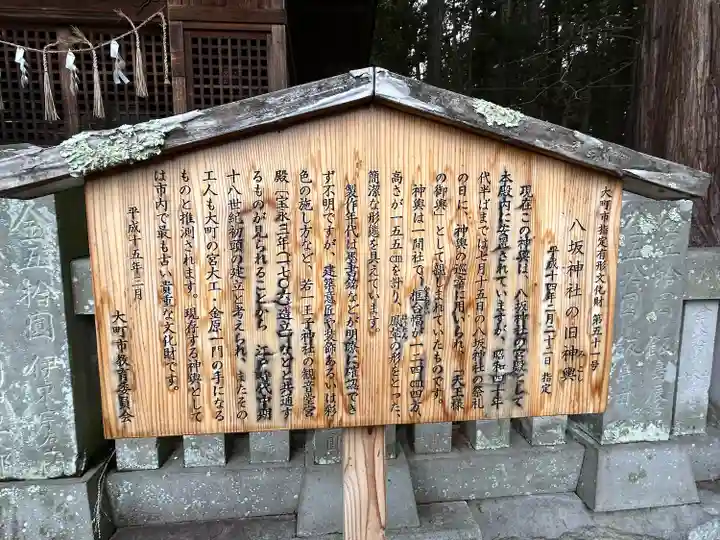 大町市指定有形文化財 第五十一号
八坂神社の旧神輿
みこし
平成十四年二月二十二日 指定
現在この神輿は、八坂神社の宮殿として
本殿内に安置されていますが、昭和四十年
代半ばまでは七月十五日の八坂神社の祭礼
の日に、神輿の巡幸に用いられ、「天王様
の御輿」として親しまれていたものです。
神輿は一間社で、框台幅が一二四cm四方、
高さが一五五cmを計り、鳳輦の形をとった、
簡潔な形態を具えています。
製作年代は墨書銘などが明瞭に確認でき
ず不明ですが、建築意匠や装飾あるいは彩
色の施し方など、若一王子神社の観音堂宮
殿〔宝永三年(一七〇六)造立〕などと共通す
るものが見られることから、江戸時代中期
十八世紀初頭の建立と考えられ、またその
工人も大町の宮大工・金原一門の手になる
ものと推測されます。現存する神輿として
は市内で最も古い貴重な文化財です。
平成十五年三月
大町市教育委員会
金五拾圓
金五拾圓